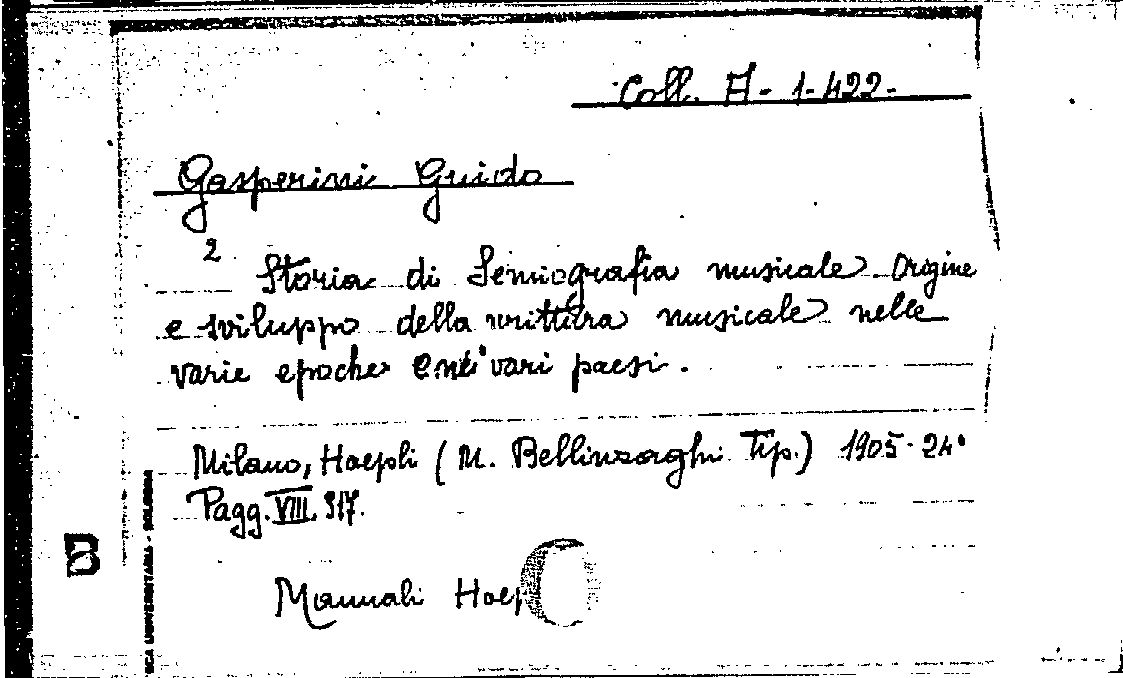 Coll. A- 1-422-
Gasperini Guido
2 Storia di Semiografia musicale Origine
e sviluppo della scrittura musicale nelle
varie epoche e nei vari paesi.
Milano, Hoepli (M. Bellinzaghi Tip.) 1905-24°
Pagg. VIII. 317.
Manuali Hoep
B
CA UNIVERSITARIA - BOLOGNA